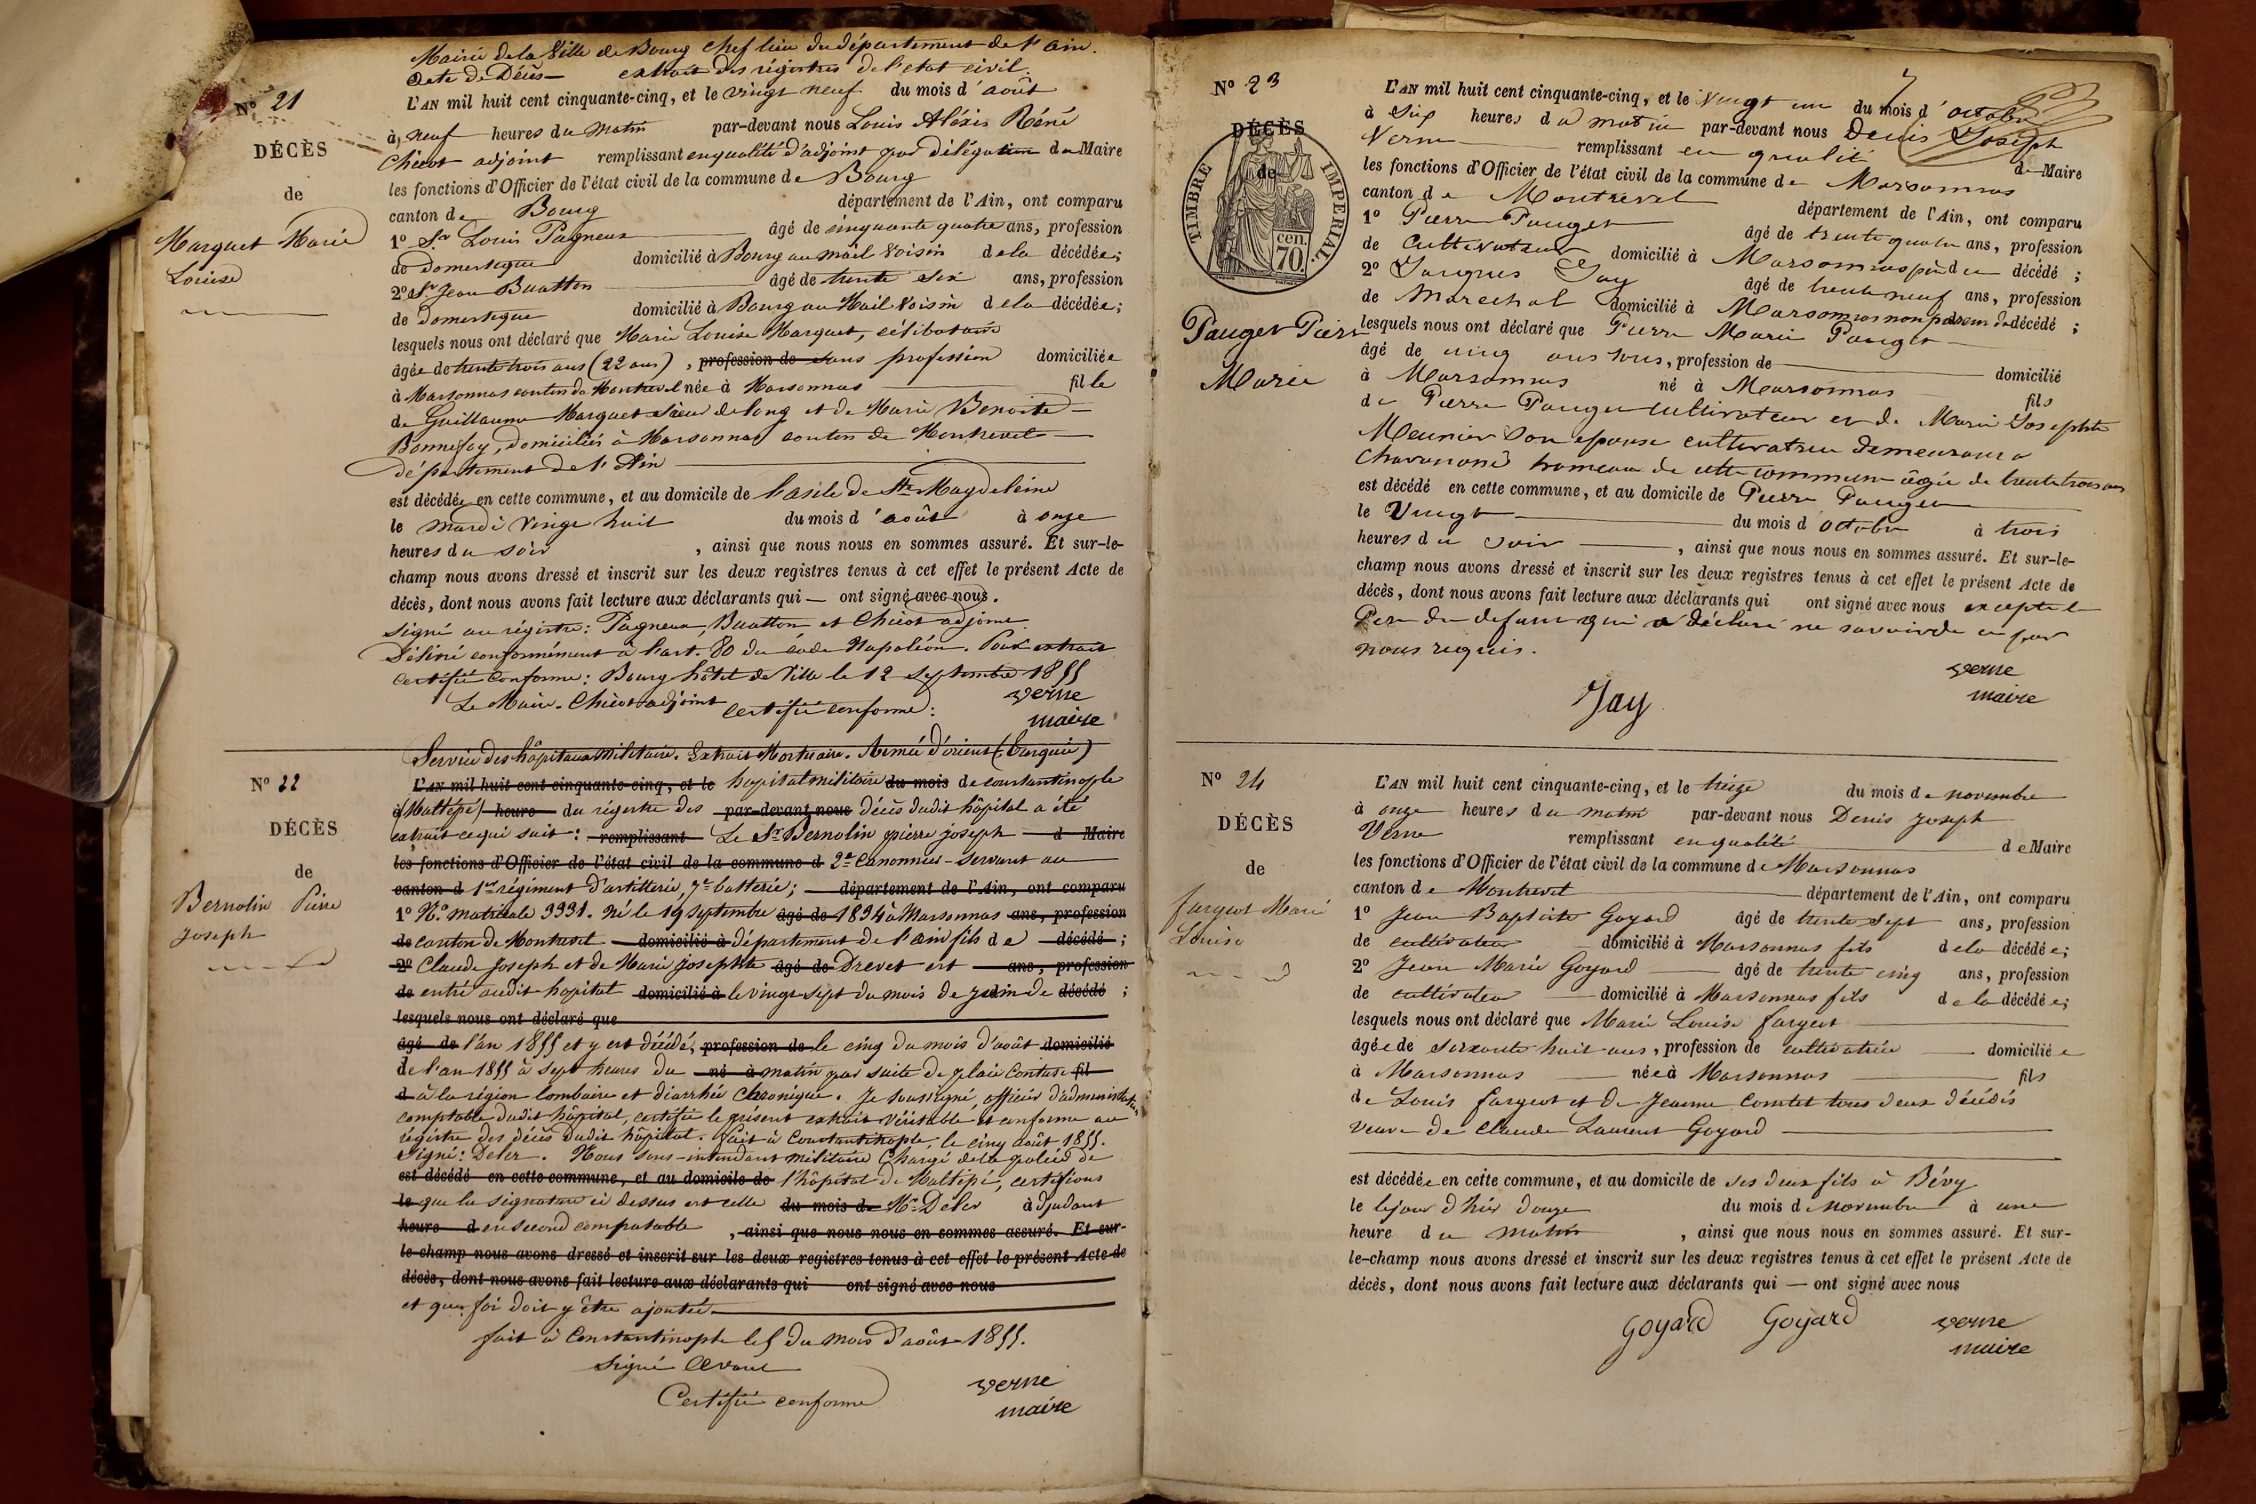 Mairie de la Ville de Bourg Chef lieu du département de l'Ain.
Acte de Décès — extrait des régistres de l'état civil.
N° 21
DÉCÈS
de
Marquet Marie
Louise
L'AN mil huit cent cinquante-cinq, et le vingt neuf du mois d'août
à neuf heures du matin par-devant nous Louis Aléxis Réné
Chicot adjoint remplissant en qualité d'adjoint par délégation du Maire
les fonctions d'Officier de l'état civil de la commune de Bourg
canton de Bourg département de l'Ain, ont comparu
1° Sr Louis Pagneux âgé de cinquante quatre ans, profession
de Domestique domicilié à Bourg au mail Voisin de la décédée;
2° Sr Jean Buatton âgé de trente six ans, profession
de Domestique domicilié à Bourg au Mail Voisin de la décédée;
lesquels nous ont déclaré que Marie Louise Marquet, célibataire
âgée de trente trois ans (22 ans), profession de sans profession domiciliée
à Marsonnas canton de Montrevel née à Marsonnas fille
de Guillaume Marquet Sieur de long et de Marie Benoite
Bonnefoy, domiciliés à Marsonnas canton de Montrevel
département de l'Ain
est décédée en cette commune, et au domicile de l'asile de Ste Magdeleine
le mardi vingt huit du mois d'août à onze
heures du soir, ainsi que nous nous en sommes assuré. Et sur-le-
champ nous avons dressé et inscrit sur les deux registres tenus à cet effet le présent Acte de
décès, dont nous avons fait lecture aux déclarants qui — ont signé avec nous.
Signé au régistre: Pagneux, Buatton et Chicot adjoint.
Délivré conformément à l'art. 80 du code Napoléon. Pour extrait
certifié conforme: Bourg hôtel de Ville le 12 septembre 1855
Le Maire. Chicot adjoint certifié conforme: verne
maire
Service des hôpitaux militaire. Extrait Mortuaire. Armée d'orient (turquie)
N° 22
DÉCÈS
de
Bernolin Pierre
Joseph
L'AN mil huit cent cinquante-cinq, et le hopital militaire du mois de constantinople
à (Maltépé) heure du régistre des par-devant nous décès dudit hôpital a été
extrait ce qui suit: remplissant Le Sr Bernolin pierre joseph d Maire
les fonctions d'Officier de l'état civil de la commune d 2e Canonnier-Servant au
canton d 1er régiment d'artillerie, 7e batterie; département de l'Ain, ont comparu
1° No matricule 3331. né le 19 Septembre âgé de 1834 à Marsonnas ans, profession
de canton de Montrevel domicilié à département de l'ain fils de décédé;
2° Claude Joseph et de Marie josephte âgé de Drevet est ans, profession
de entré audit hopital domicilié à le vingt sept du mois de juin de décédé;
lesquels nous ont déclaré que
âgé de l'an 1855 et y est décédé, profession de le cinq du mois d'août domicilié
de l'an 1855 à sept heures du né à matin par suite de plaie contuse fil
d à la région lombaire et diarrhée Chronique. Je soussigné, officier d'administration
comptable dudit hôpital, certifie le présent extrait véritable et conforme au
régistre des décès dudit hôpital. fait à Constantinople, le cinq août 1855.
Signé: Deler. Nous Sous-intendant militaire Chargé de la police de
est décédé en cette commune, et au domicile de l'hôpital de Maltépé, certifions
le que la signature ci dessus est celle du mois de Mr Deler adjudant
heure d en second comptable, ainsi que nous nous en sommes assuré. Et sur-
le-champ nous avons dressé et inscrit sur les deux registres tenus à cet effet le présent Acte de
décès, dont nous avons fait lecture aux déclarants qui ont signé avec nous
et que foi doit y être ajoutée.
fait à Constantinople le 5 du mois d'août 1855.
Signé
Certifié conforme verne
maire
7
N° 23
DÉCÈS
de
TIMBRE IMPERIAL.
cen.
70.
Pauget Pierre
Marie
L'AN mil huit cent cinquante-cinq, et le vingt un du mois d'octobre
à Six heures du matin par-devant nous Denis Joseph
Verne remplissant en qualité de Maire
les fonctions d'Officier de l'état civil de la commune de Marsonnas
canton de Montrevel département de l'Ain, ont comparu
1° Pierre Pauget âgé de trente quatre ans, profession
de cultivateur domicilié à Marsonnas père du décédé;
2° Jacques Jay âgé de trente neuf ans, profession
de Marechal domicilié à Marsonnas non parent du décédé;
lesquels nous ont déclaré que Pierre Marie Pauget
âgé de cinq ans, profession de domicilié
à Marsonnas né à Marsonnas fils
de Pierre Pauget cultivateur et de Marie Josephte
Meunier Son epouse cultivatrice demeurant a
Chavannes hameau de cette commune âgée de trente trois ans
est décédé en cette commune, et au domicile de Pierre Pauget
le Vingt du mois d'octobre à trois
heures du soir, ainsi que nous nous en sommes assuré. Et sur-le-
champ nous avons dressé et inscrit sur les deux registres tenus à cet effet le présent Acte de
décès, dont nous avons fait lecture aux déclarants qui ont signé avec nous excepté le
Pere du defunt qui a déclaré ne savoir de ce par
nous requis.
Jay
verne
maire
N° 24
DÉCÈS
de
fargeot Marie
Louise
L'AN mil huit cent cinquante-cinq, et le treize du mois de novembre
à onze heures du matin par-devant nous Denis joseph
Verne remplissant en qualité de Maire
les fonctions d'Officier de l'état civil de la commune de Marsonnas
canton de Montrevel département de l'Ain, ont comparu
1° Jean Baptiste Goyard âgé de trente sept ans, profession
de cultivateur domicilié à Marsonnas fils de la décédée;
2° Jean Marie Goyard âgé de trente cinq ans, profession
de cultivateur domicilié à Marsonnas fils de la décédée;
lesquels nous ont déclaré que Marie Louise fargeot
âgée de soixante huit ans, profession de cultivatrice domiciliée
à Marsonnas née à Marsonnas fils
de Louis fargeot et de Jeanne Comtet tous deux décédés
veuve de Claude Laurent Goyard
est décédée en cette commune, et au domicile de ses deux fils à Bévy
le lejour d'hier douze du mois de novembre à une
heure du matin, ainsi que nous nous en sommes assuré. Et sur-
le-champ nous avons dressé et inscrit sur les deux registres tenus à cet effet le présent Acte de
décès, dont nous avons fait lecture aux déclarants qui — ont signé avec nous
Goyard Goyard verne
maire